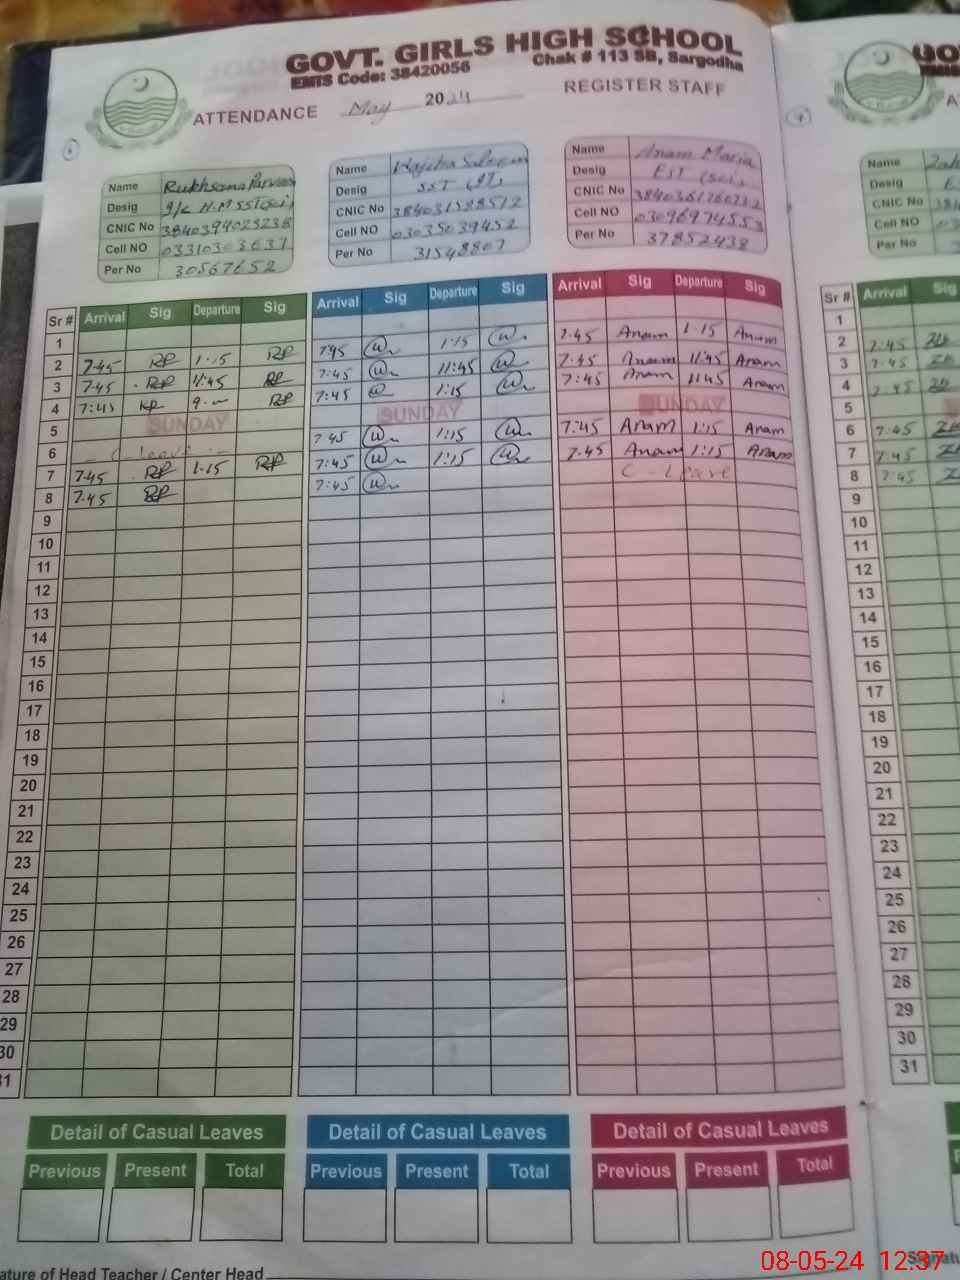 GOVT. GIRLS HIGH SCHOOL
EMIS Code: 38420056 Chak # 113 SB, Sargodha
ATTENDANCE May 2024 REGISTER STAFF
Name Rukhsana Parveen
Desig I/C H.M SST(Sci)
CNIC No
Cell NO 03310303637
Per No 30567652
Name Wajiha
Desig SST (IT)
CNIC No 3840315885172
Cell NO 03035039452
Per No 31548807
Name Anam Maria
Desig EST (Sci)
CNIC No
Cell NO 03096974553
Per No 37852438
Name
Desig
CNIC No
Cell NO
Per No
Sr # Arrival Sig Departure Sig Arrival Sig Departure Sig Arrival Sig Departure Sig Sr # Arrival Sig
1 1
2 7:45 RP 1:15 RP 7:45 1:15 7:45 Anam 1:15 Anam 2 7:45
3 7:45 RP 11:45 RP 7:45 11:45 7:45 Anam 11:45 Anam 3 7:45
4 7:45 RP RP 7:45 1:15 7:45 Anam 11:45 Anam 4 7:45
5 SUNDAY SUNDAY SUNDAY 5
6 C Leave 7:45 1:15 7:45 Anam 1:15 Anam 6 7:45
7 7:45 RP 1:15 RP 7:45 1:15 7:45 Anam 1:15 Anam 7 7:45
8 7:45 RP 7:45 C - Leave 8 7:45
9 9
10 10
11 11
12 12
13 13
14 14
15 15
16 16
17 17
18 18
19 19
20 20
21 21
22 22
23 23
24 24
25 25
26 26
27 27
28 28
29 29
30 30
31 31
Detail of Casual Leaves Detail of Casual Leaves Detail of Casual Leaves
Previous Present Total Previous Present Total Previous Present Total
ature of Head Teacher / Center Head
08-05-24 12:37